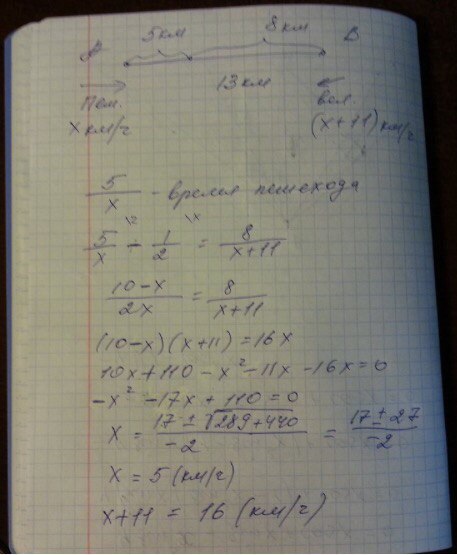 5км 8км
А В
13км
пеш. вел.
x км/ч (x+11) км/ч
5/x - время пешехода
5/x - 1/2 = 8/(x+11)
(10-x)/2x = 8/(x+11)
(10-x)(x+11)=16x
10x+110-x²-11x-16x=0
-x²-17x+110=0
x = (17±√(289+440))/-2 = (17±27)/-2
x = 5 (км/ч)
x+11 = 16 (км/ч)